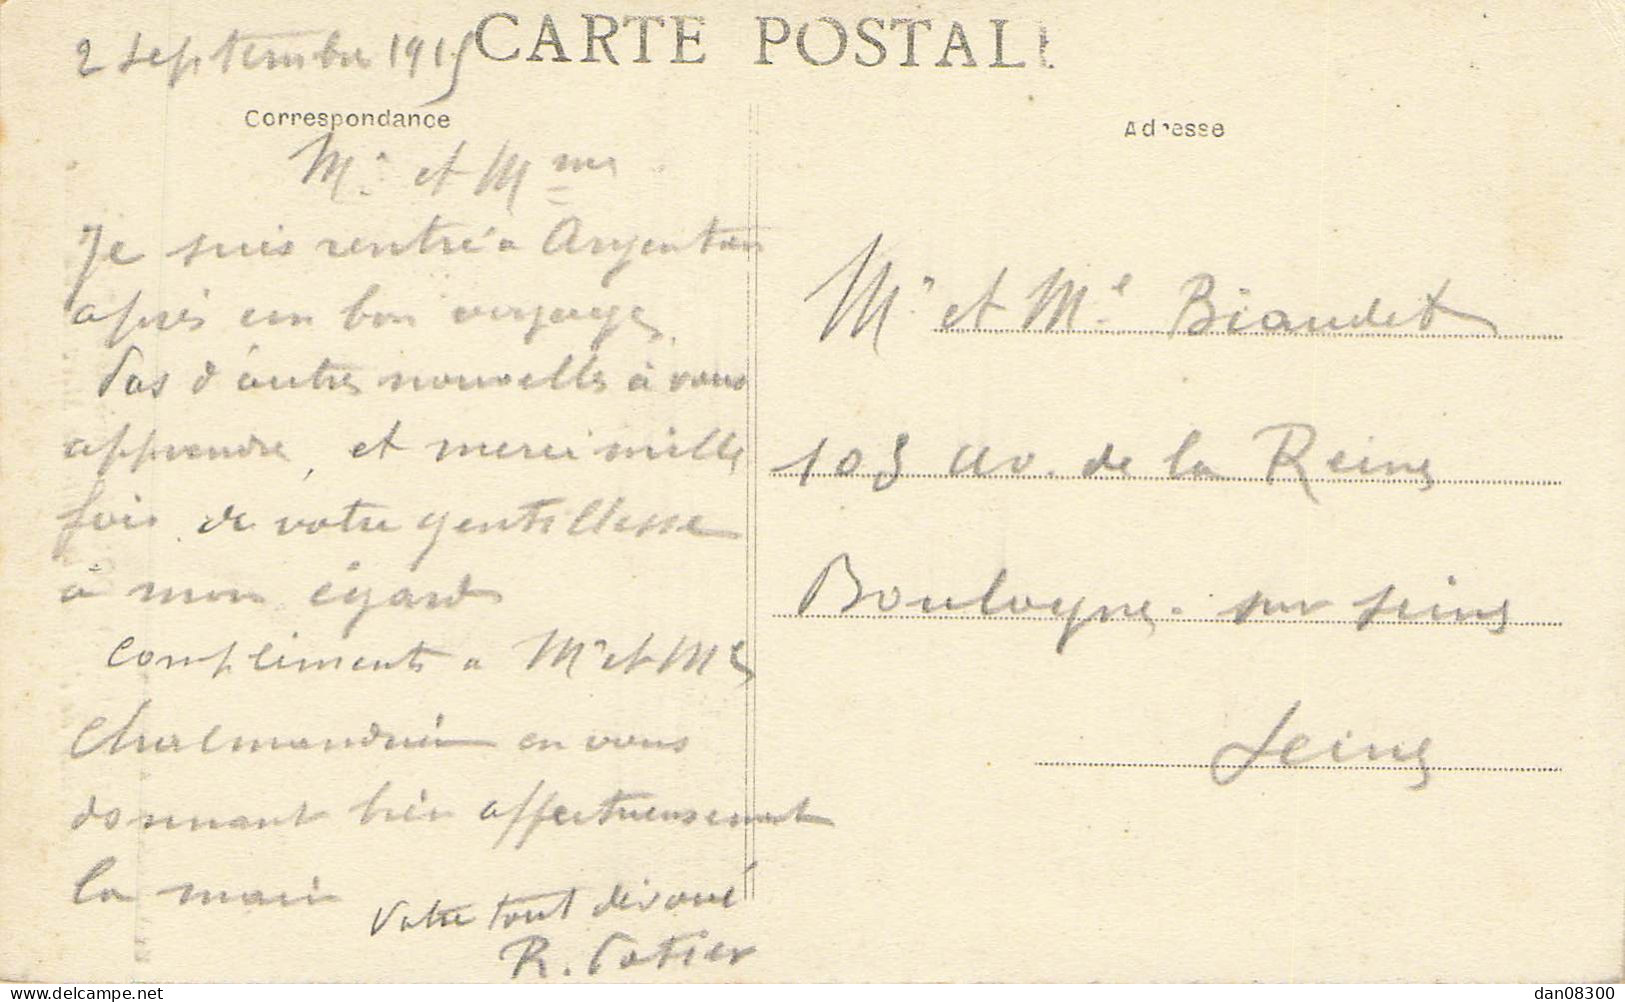 2 septembre 1915
CARTE POSTALE
Correspondance
Adresse
Mr et Mme
Je suis rentré à Argentan
après un bon voyage
Pas d'autres nouvelles à vous
apprendre, et merci mille
fois de votre gentillesse
à mon égard
Compliments a Mr et Me
en vous
donnant bien affectueusement
la main
Votre tout dévoué
R. Potier
Mr et Me Biaudet
103 av. de la Reine
Boulogne-sur Seine
Seine
delcampe.net
dan08300